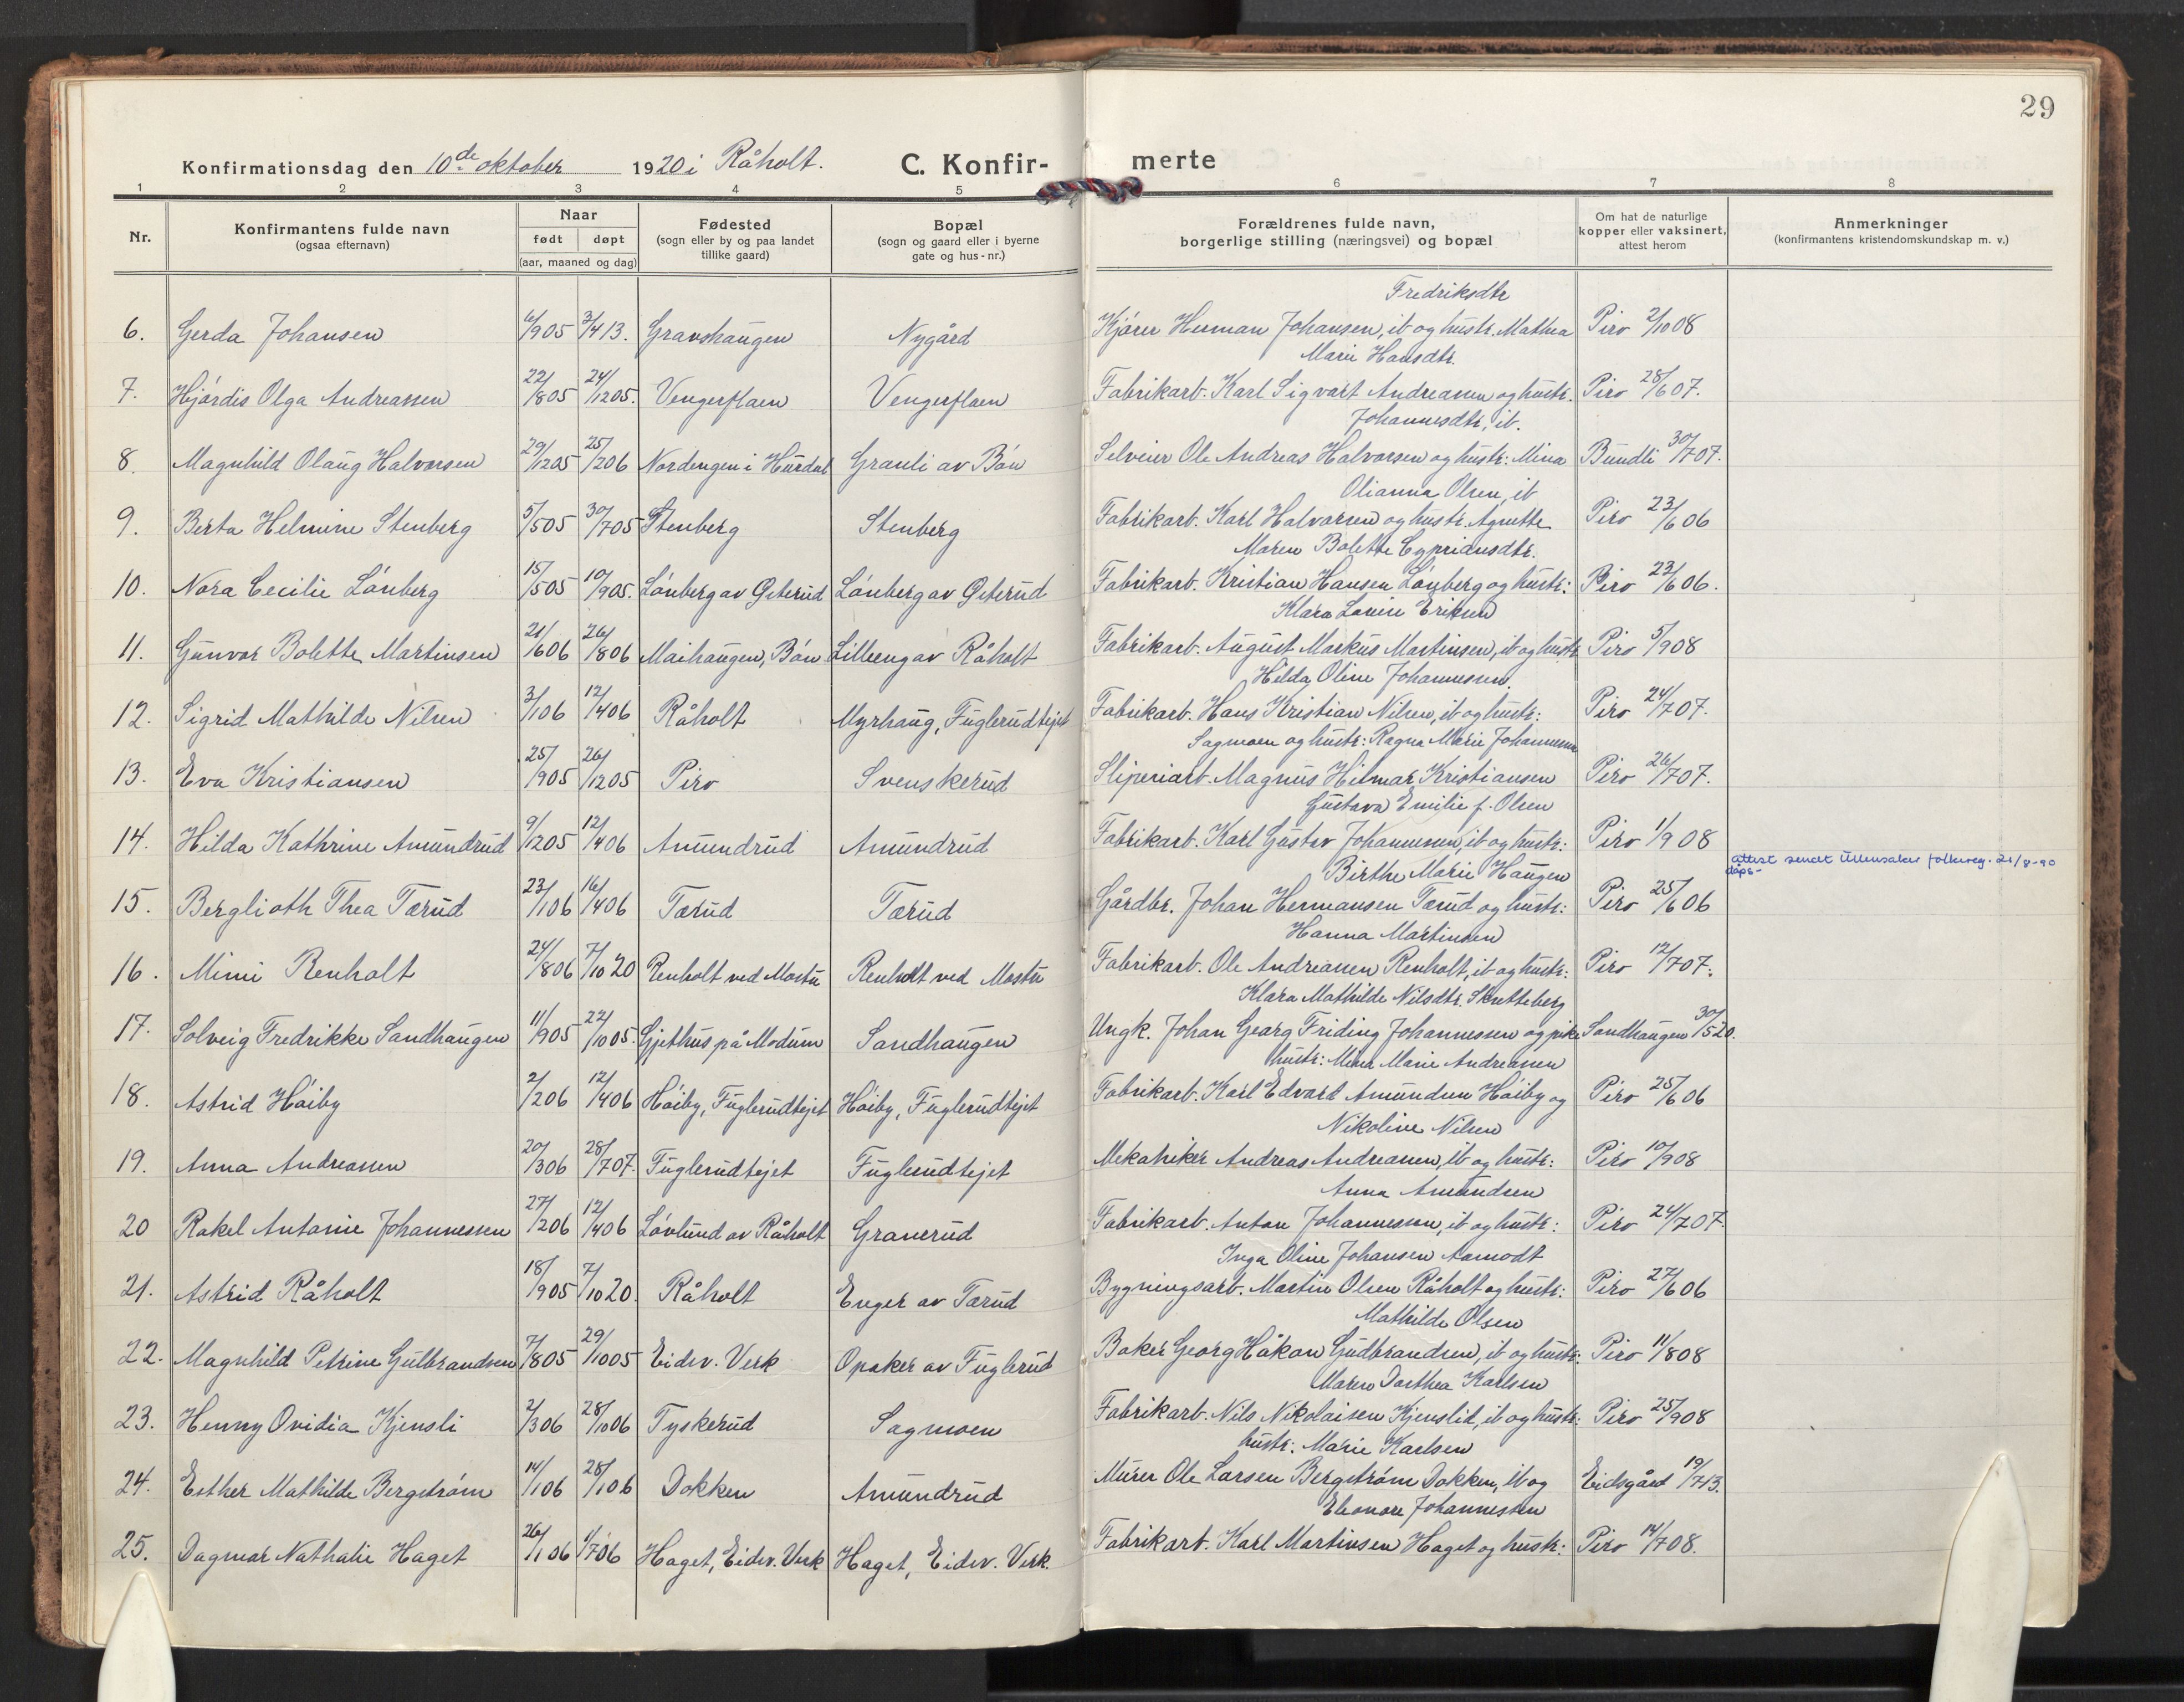 29
Konfirmationsdag den 10de oktober 1920 i Råholt. C. Konfir- merte
1 2 3 4 5 6 7 8
Nr. Konfirmantens fulde navn (ogsaa efternavn) Naar født døpt (aar, maaned og dag) Fødested (sogn eller by og paa landet tillike gaard) Bopæl (sogn og gaard eller i byerne gate og hus-nr.) Forældrenes fulde navn, borgerlige stilling (næringsvei) og bopæl Om hat de naturlige kopper eller vaksinert, attest herom Anmerkninger (konfirmantens kristendomskundskap m. v.)
Fredriksdtr
6. Gerda Johansen 6/905 3/413. Gravshaugen Nygård Kjører Herman Johansen, ib og hustr. Mathea Piro 2/1008
Marie Hansdtr.
7. Hjørdis Olga Andreassen 22/805 24/1205. Vengerflaen Vengerflaen Fabrikarb. Karl Sigvart Andreassen og hustr. Piro 28/607.
Johannesdtr, ib.
8. Magnhild Olaug Halvorsen 29/1205 25/206 Nordengen i Hurdal Granli av Bøn Selveier Ole Andreas Halvorsen og hustr: Mina Bundli 30/707.
Olianna Olsen, ib
9. Berta Helmine Stenberg 5/505 30/705 Stenberg Stenberg Fabrikarb. Karl Halvorsen og hustr. Agnette Piro 23/606
Maren Bolette Cypriansdtr.
10. Nora Cecilie Lønberg 15/505 10/905. Lønberg av Østerud Lønberg av Østerud Fabrikarb. Kristian Hansen Lønberg og hustr: Piro 23/606.
Klara Lovise Eriksen
11. Gunvor Bolette Martinsen 21/606 26/806 Maihaugen, Bøn Lilleeng av Råholt Fabrikarb. August Markus Martinsen, ib og hustr Piro 5/908
Hilda Oline Johannesen.
12. Sigrid Mathilde Nilsen 3/106 12/406 Råholt Myrhaug, Fuglerudtejet Fabrikarb. Hans Kristian Nilsen, ib og hustr: Piro 24/707.
Sagmoen og hustr: Ragna Marie Johannesen
13. Eva Kristiansen 25/905 26/1205 Piro Svenskerud Sliperiarb. Magnus Hilmar Kristiansen Piro 26/707.
Gustava Emilie f. Olsen
14. Hilda Kathrine Amundrud 9/1205 12/406 Amundrud Amundrud Fabrikarb. Karl Gustav Johannesen, ib og hustr: Piro 1/908
attest sendt Ullensaker folkereg. 21/8-90
dåps-
Birthe Marie Haugen
15. Berglioth Thea Tærud 23/106 16/406 Tærud Tærud Gårdbr. Johan Hermansen Tærud og hustr: Piro 25/606
Hanna Martinsen
16. Mimi Renholt 24/806 7/1020 Renholt ved Mostu Renholt ved Mostu Fabrikarb. Ole Andreassen Renholt, ib og hustr: Piro 12/707.
Klara Mathilde Nilsdtr. Skretteberg
17. Solveig Fredrikke Sandhaugen 11/905 22/1005. Gjethus på Modum Sandhaugen Ungk. Johan Georg Friding Johannessen og pike Sandhaugen 30/520.
hustr: Mina Marie Andreassen
18. Astrid Høiby 2/206 12/406 Høiby, Fuglerudtejet Høiby, Fuglerudtejet Fabrikarb. Karl Edvard Amundsen Høiby og Piro 25/606
Nikoline Nilsen
19. Anna Andreassen 20/306 28/707. Fuglerudtejet Fuglerudtejet Mekaniker Andreas Andreassen, ib og hustr: Piro 10/908
Anna Amundsen
20 Rakel Antonie Johannessen 27/206 12/406 Løvlund av Råholt Granerud Fabrikarb. Anton Johannessen, ib og hustr: Piro 24/707.
Inga Oline Johansen Aamodt
21. Astrid Råholt 18/905 7/1020. Råholt Enger av Tærud Bygningsarb. Martin Olsen Råholt og hustr: Piro 27/606
Mathilde Olsen
22. Magnhild Petrine Gulbrandsen 7/805 29/1005 Eidsv. Verk Opaker av Fuglerud Baker Georg Håkon Gudbrandsen, ib og hustr: Piro 11/808
Maren Dorthea Karlsen
23. Henny Ovidia Kjensli 2/306 28/1006 Tyskerud Sagmoen Fabrikarb. Nils Nikolaisen Kjenslid, ib og hustr: Piro 25/908
hustr: Marie Karlsen
24. Esther Mathilde Bergstrøm 14/106 28/106 Dokken Amundrud Murer Ole Larsen Bergstrøm Dokken, ib og Eidsgård 19/713.
Eleonore Johannessen
25. Dagmar Nathalie Haget 26/106 1/706 Haget, Eidsv. Verk Haget, Eidsv. Verk. Fabrikarb. Karl Martinsen Haget og hustr: Piro 14/708.